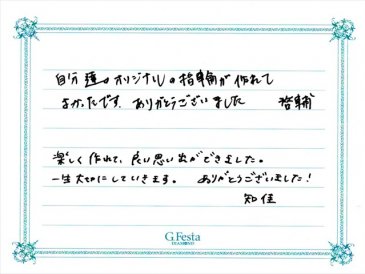 自分達のオリジナルの指輪が作れて
よかったです。ありがとうございました 啓輔
楽しく作れて、良い思い出ができました。
一生大切にしていきます。 ありがとうございました!
知佳
G.Festa
DIAMOND